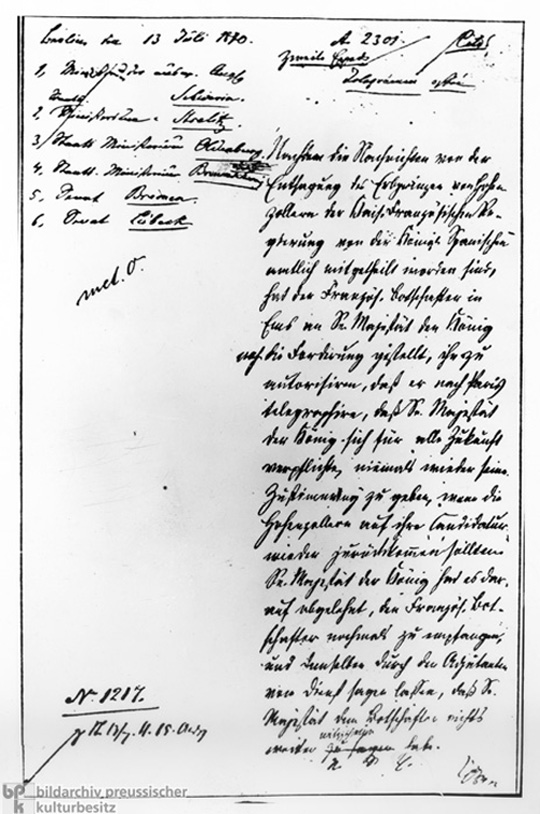 Berlin den 13 Juli 1870.
A. 2301
Cito!
1, Ministerium
Schwerin.
2, Ministerium - Strelitz
3, Staats Ministerium Oldenburg.
4. Staats. Ministerium
5. Senat Bremen.
6. Senat Lübeck
Nachdem die Nachrichten von der
Entsagung des Erbprinzen von Hohen
zollern der Kais. Französischen Re-
gierung von der Königl. Spanischen
amtlich mitgetheilt worden sind,
hat der Französ. Botschafter in
Ems an Se. Majestät den König
noch die Forderung gestellt, ihn zu
autorisiren, daß er nach Paris
telegraphire, daß Se. Majestät
der König sich für alle Zukunft
verpflichte, niemals wieder seine
Zustimmung zu geben, wenn die
Hohenzollern auf ihre Candidatur
wieder zurückkommen sollten.
Se. Majestät der König hat es dar-
auf abgelehnt, den Französ. Bot-
schafter nochmals zu empfangen,
und demselben durch den Adjutanten
vom Dienst sagen lassen, daß Se.
Majestät dem Botschafter nichts
mitzutheilen
weiter zu sagen habe.
No. 1217.
bildarchiv preussischer
kulturbesitz
bpk